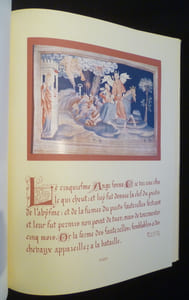 Le cinquiesme Ange sonna Et je vis une estoi
le qui cheut, et luy fut donnee la clef du puits
de l'abysme: et de la fumee du puits sauterelles sortirent
et leur fut permis non point de tuer: mais de tourmenter
cinq mois. Or la forme des sauterelles semblable a des
chevaux appareillez a la bataille.